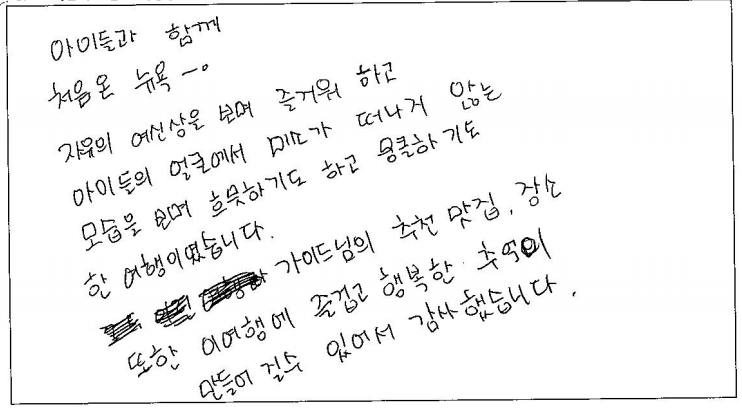 아이들과 함께
처음온 뉴욕~。
자유의 여신상을 보며 즐거워 하고
아이들의 얼굴에서 미소가 떠나지 않는
모습을 보며 흐뭇하기도 하고 뭉클하기도
한 여행이였습니다.
가이드님의 추천 맛집, 장소
또한 이여행에 즐겁고 행복한 추억이
만들어 질수 있어서 감사했습니다.